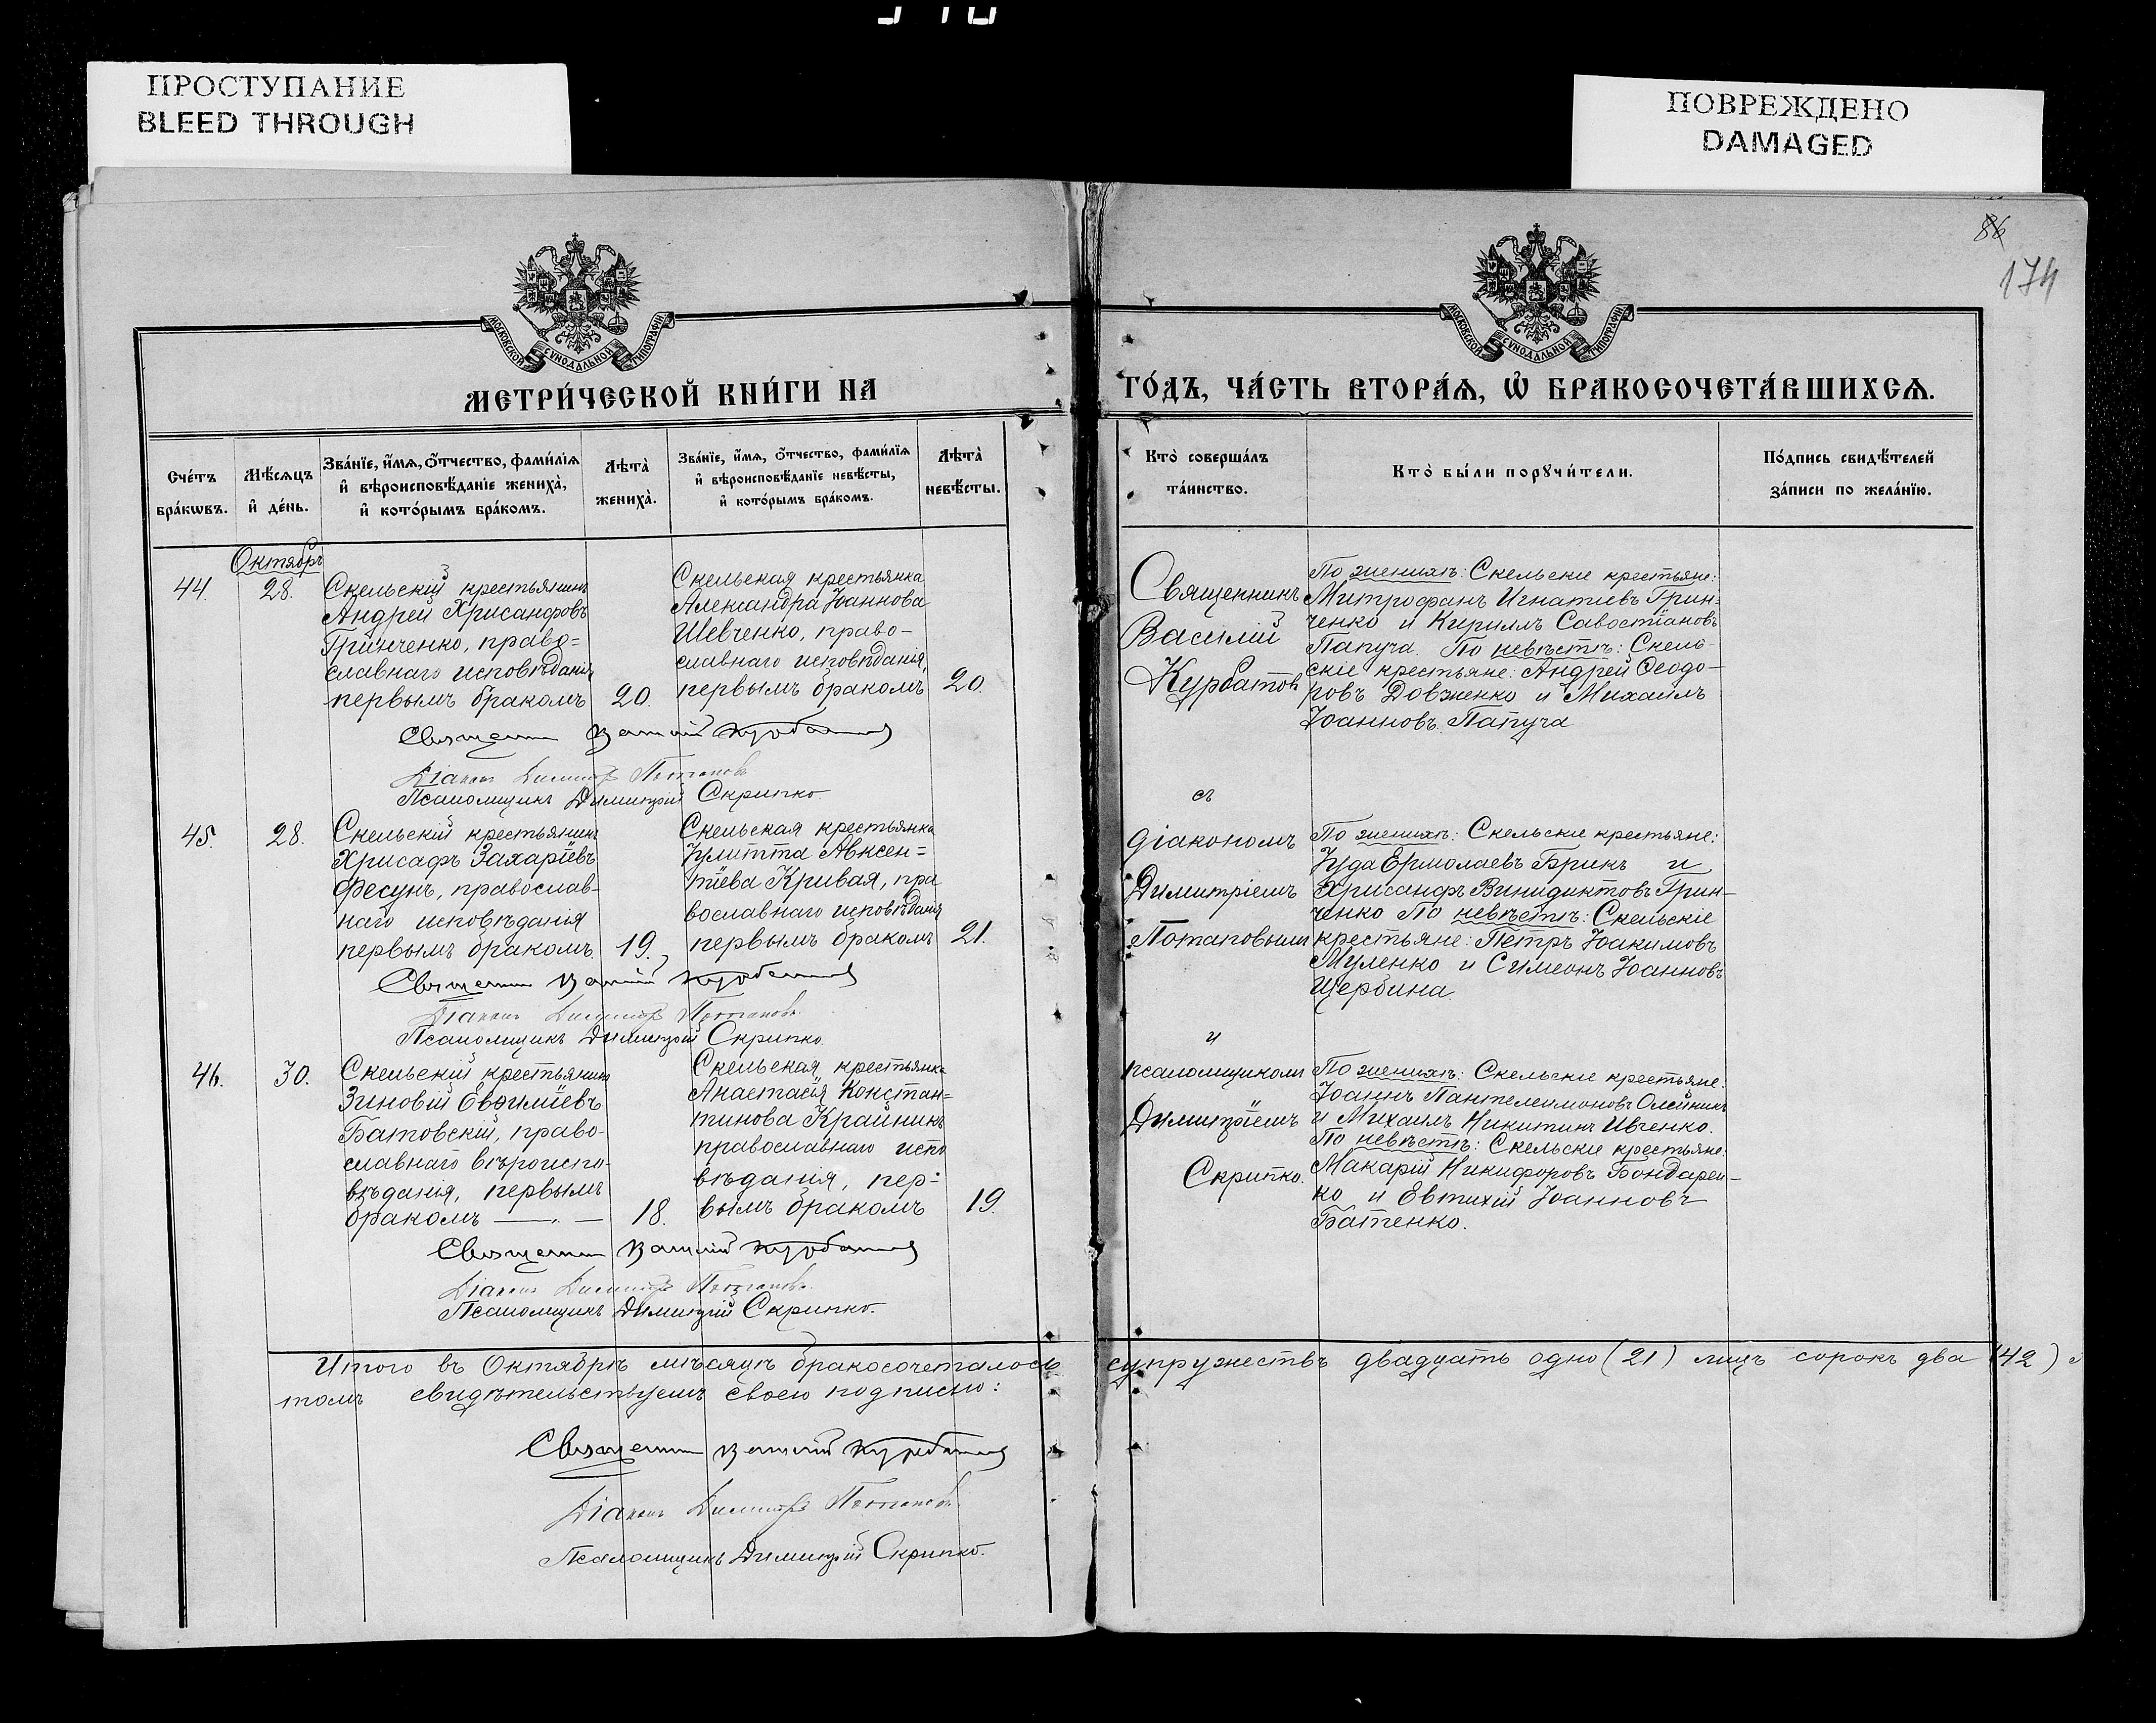 ПРОСТУПАНИЕ
BLEED THROUGH
ПОВРЕЖДЕНО
DAMAGED
86
174
МОСКОВСКОЙ СѴНОДАЛЬНОЙ ТИПОГРАФІИ
МОСКОВСКОЙ СѴНОДАЛЬНОЙ ТИПОГРАФІИ
МЕТРИ́ЧЕСКОЙ КНИ́ГИ НА
ГО́ДЪ, ЧА́СТЬ ВТОРА́Я, Ѡ БРАКОСОЧЕТА́ВШИХСЯ.
Сче́тъ
бра́кωвъ.
Мѣ́сяцъ
и҆ де́нь.
Зва́нїе, и҆́мя, ѻ҆́тчество, фами́лїя
и҆ вѣроисповѣ́данїе жениха̀,
и҆ кото́рымъ бра́комъ.
Лѣта̀
жениха̀.
Зва́нїе, и҆́мя, ѻ҆́тчество, фами́лїя
и҆ вѣроисповѣ́данїе невѣ́сты,
и҆ кото́рымъ бра́комъ.
Лѣта̀
невѣ́сты.
Кто̀ соверша́лъ
та́инство.
Кто̀ бы́ли порꙋчи́тели.
По́дпись свидѣ́телей
за́писи по жела́нїю.
Октябрь
44.
28.
Скельскій крестьянинъ
Андрей Хрисанфовъ
Гринченко, право=
славнаго исповѣданія
первымъ бракомъ
20.
Скельская крестьянка
Александра Іоаннова
Шевченко, право-
славнаго исповѣданія,
первымъ бракомъ
20.
Священникъ
Василій
Курбатовъ
По женихѣ: Скельскіе крестьяне:
Митрофанъ Игнатіевъ Грин=
ченко и Кириллъ Савостіановъ
Папуча. По невѣстѣ: Скель-
скіе крестьяне: Андрей Ѳеодо-
ровъ Довженко и Михаилъ
Іоанновъ Папуча
Священникъ Василій Курбатовъ
Діаконъ Димитрій Потаповъ
Псаломщикъ Димитрій Скрипко.
45.
28.
Скельскій крестьянинъ
Хрисафъ Захаріевъ
Фесунъ, православ-
наго исповѣданія
первымъ бракомъ
19.
Скельская крестьянка
Іулитта Авксен=
тіева Кривая, пра
вославнаго исповѣданія
первымъ бракомъ
21.
съ
діакономъ
Димитріемъ
Потаповымъ
По женихѣ: Скельскіе крестьяне:
Іуда Ермолаевъ Брикъ и
Хрисанфъ Винидиктовъ Грин-
ченко По невѣстѣ: Скельскіе
крестьяне: Петръ Іоакимовъ
Муленко и Симеонъ Іоанновъ
Щербина.
Священникъ Василій Курбатовъ
Діаконъ Димитрій Потаповъ
Псаломщикъ Димитрій Скрипко.
46.
30.
Скельскій крестьянинъ
Зиновій Евфиміевъ
Батовскій, право-
славнаго вѣроиспо-
вѣданія, первымъ
бракомъ
18.
Скельская крестьянка
Анастасія Констан=
тинова Крайникъ
православнаго испо
вѣданія, пер=
вымъ бракомъ
19.
и
псаломщикомъ
Димитріемъ
Скрипко.
По женихѣ: Скельскіе крестьяне.
Іоаннъ Пантелеимоновъ Олейникъ
и Михаилъ Никитинъ Ивченко.
По невѣстѣ: Скельскіе крестьяне:
Макарій Никифоровъ Бондарен-
ко и Евтихій Іоанновъ
Батенко.
Священникъ Василій Курбатовъ
Діаконъ Димитрій Потаповъ
Псаломщикъ Димитрій Скрипко.
Итого въ Октябрѣ мѣсяцѣ бракосочеталось супружествъ двадцать одно (21) лицъ сорокъ два (42)
томъ свидѣтельствуемъ своею подписью:
Священникъ Василій Курбатовъ
Діаконъ Димитрій Потаповъ
Псаломщикъ Димитрій Скрипко.